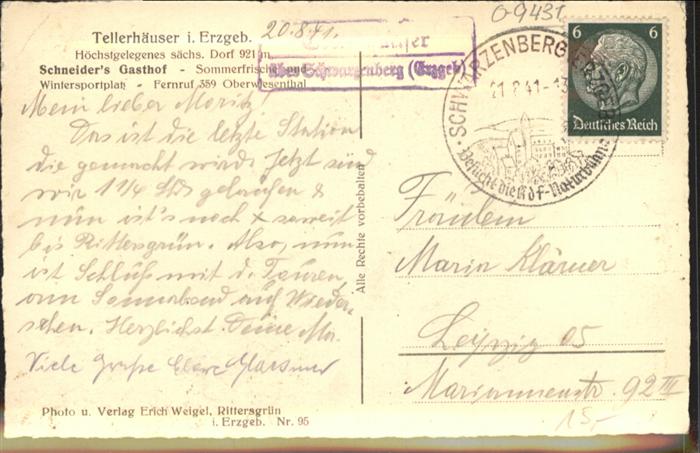 Tellerhäuser i. Erzgeb.
Höchstgelegenes sächs. Dorf 921 m
Schneider's Gasthof - Sommerfrische
Wintersportplatz - Fernruf 359 Oberwiesenthal
20.8.41.
über Schwarzenberg (Erzgeb)
Mein lieber Moritz!
Das ist die letzte Station
die gemacht wird. Jetzt sind
wir 1¼ Std gelaufen &
nun ist's noch x soweit
bis Rittersgrün. Also, nun
ist Schluß mit d. Touren,
am Sonnabend auf Wieder-
sehen. Herzlichst Deine
Viele Grüße
Photo u. Verlag Erich Weigel, Rittersgrün
i. Erzgeb. Nr. 95
Alle Rechte vorbehalten
09431
SCHWARZENBERG ERZGEB
21.8.41-13
Besucht die KdF-Naturbühne
6 6
Deutsches Reich
Fräulein
Maria Klärner
Leipzig O5
Mariannenstr. 92 III
15,-